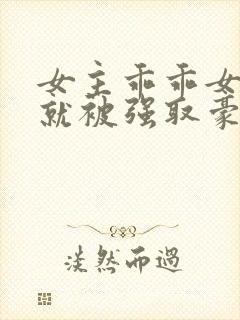 女主乖乖女
就被强取豪
淡然而過